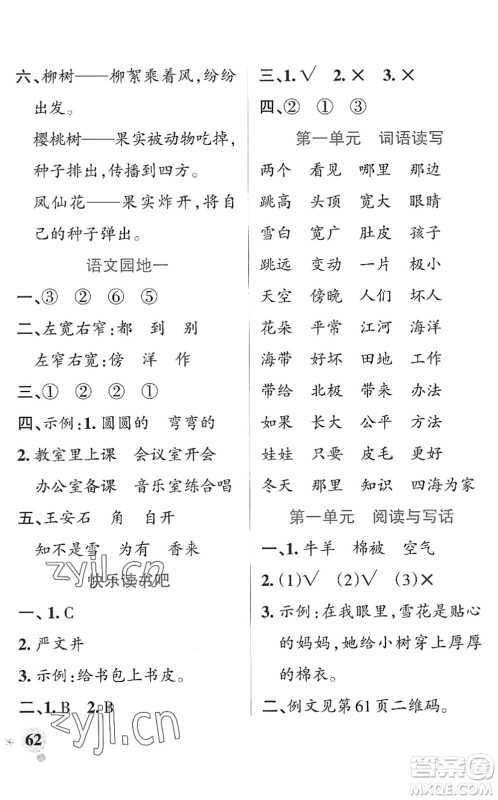 六、柳树——柳絮乘着风,纷纷
出发。
樱桃树——果实被动物吃掉,
种子排出,传播到四方。
凤仙花——果实炸开,将自
己的种子弹出。
语文园地一
一、③ ② ⑥ ⑤
二、左宽右窄:都 到 别
左窄右宽:傍 洋 作
三、① ② ② ①
四、示例:1. 圆圆的 弯弯的
2. 教室里上课 会议室开会
办公室备课 音乐室唱歌
五、王安石 角 自开
知不是雪 为有 香来
快乐读书吧
一、1. C
2. 严文井
3. 示例:给书包上书皮。
二、1. B 2. B
62
三、1. √ 2. × 3. ×
四、② ① ③
第一单元 词语读写
两个 看见 哪里 那边
跳高 头顶 宽大 眼睛
雪白 宽广 肚皮 皮衣
跳远 变动 一片 极小
天空 傍晚 人们 坏人
花朵 平常 江河 海洋
海带 好坏 田地 工作
带给 北极 带来 办法
如果 长大 公平 方法
娃娃 只要 皮毛 更好
冬天 那如 知识 四海为家
第一单元 阅读与写话
一、1. 牛羊 棉被 空气
2. (1)√ (2)√ (3)×
3. 示例:在我眼里,雪花是贴心
的妈妈,她给小树穿上厚厚
的棉衣。
二、例文见第 61 页二维码。
zyjl.cn
zyjl.cn
作业帮